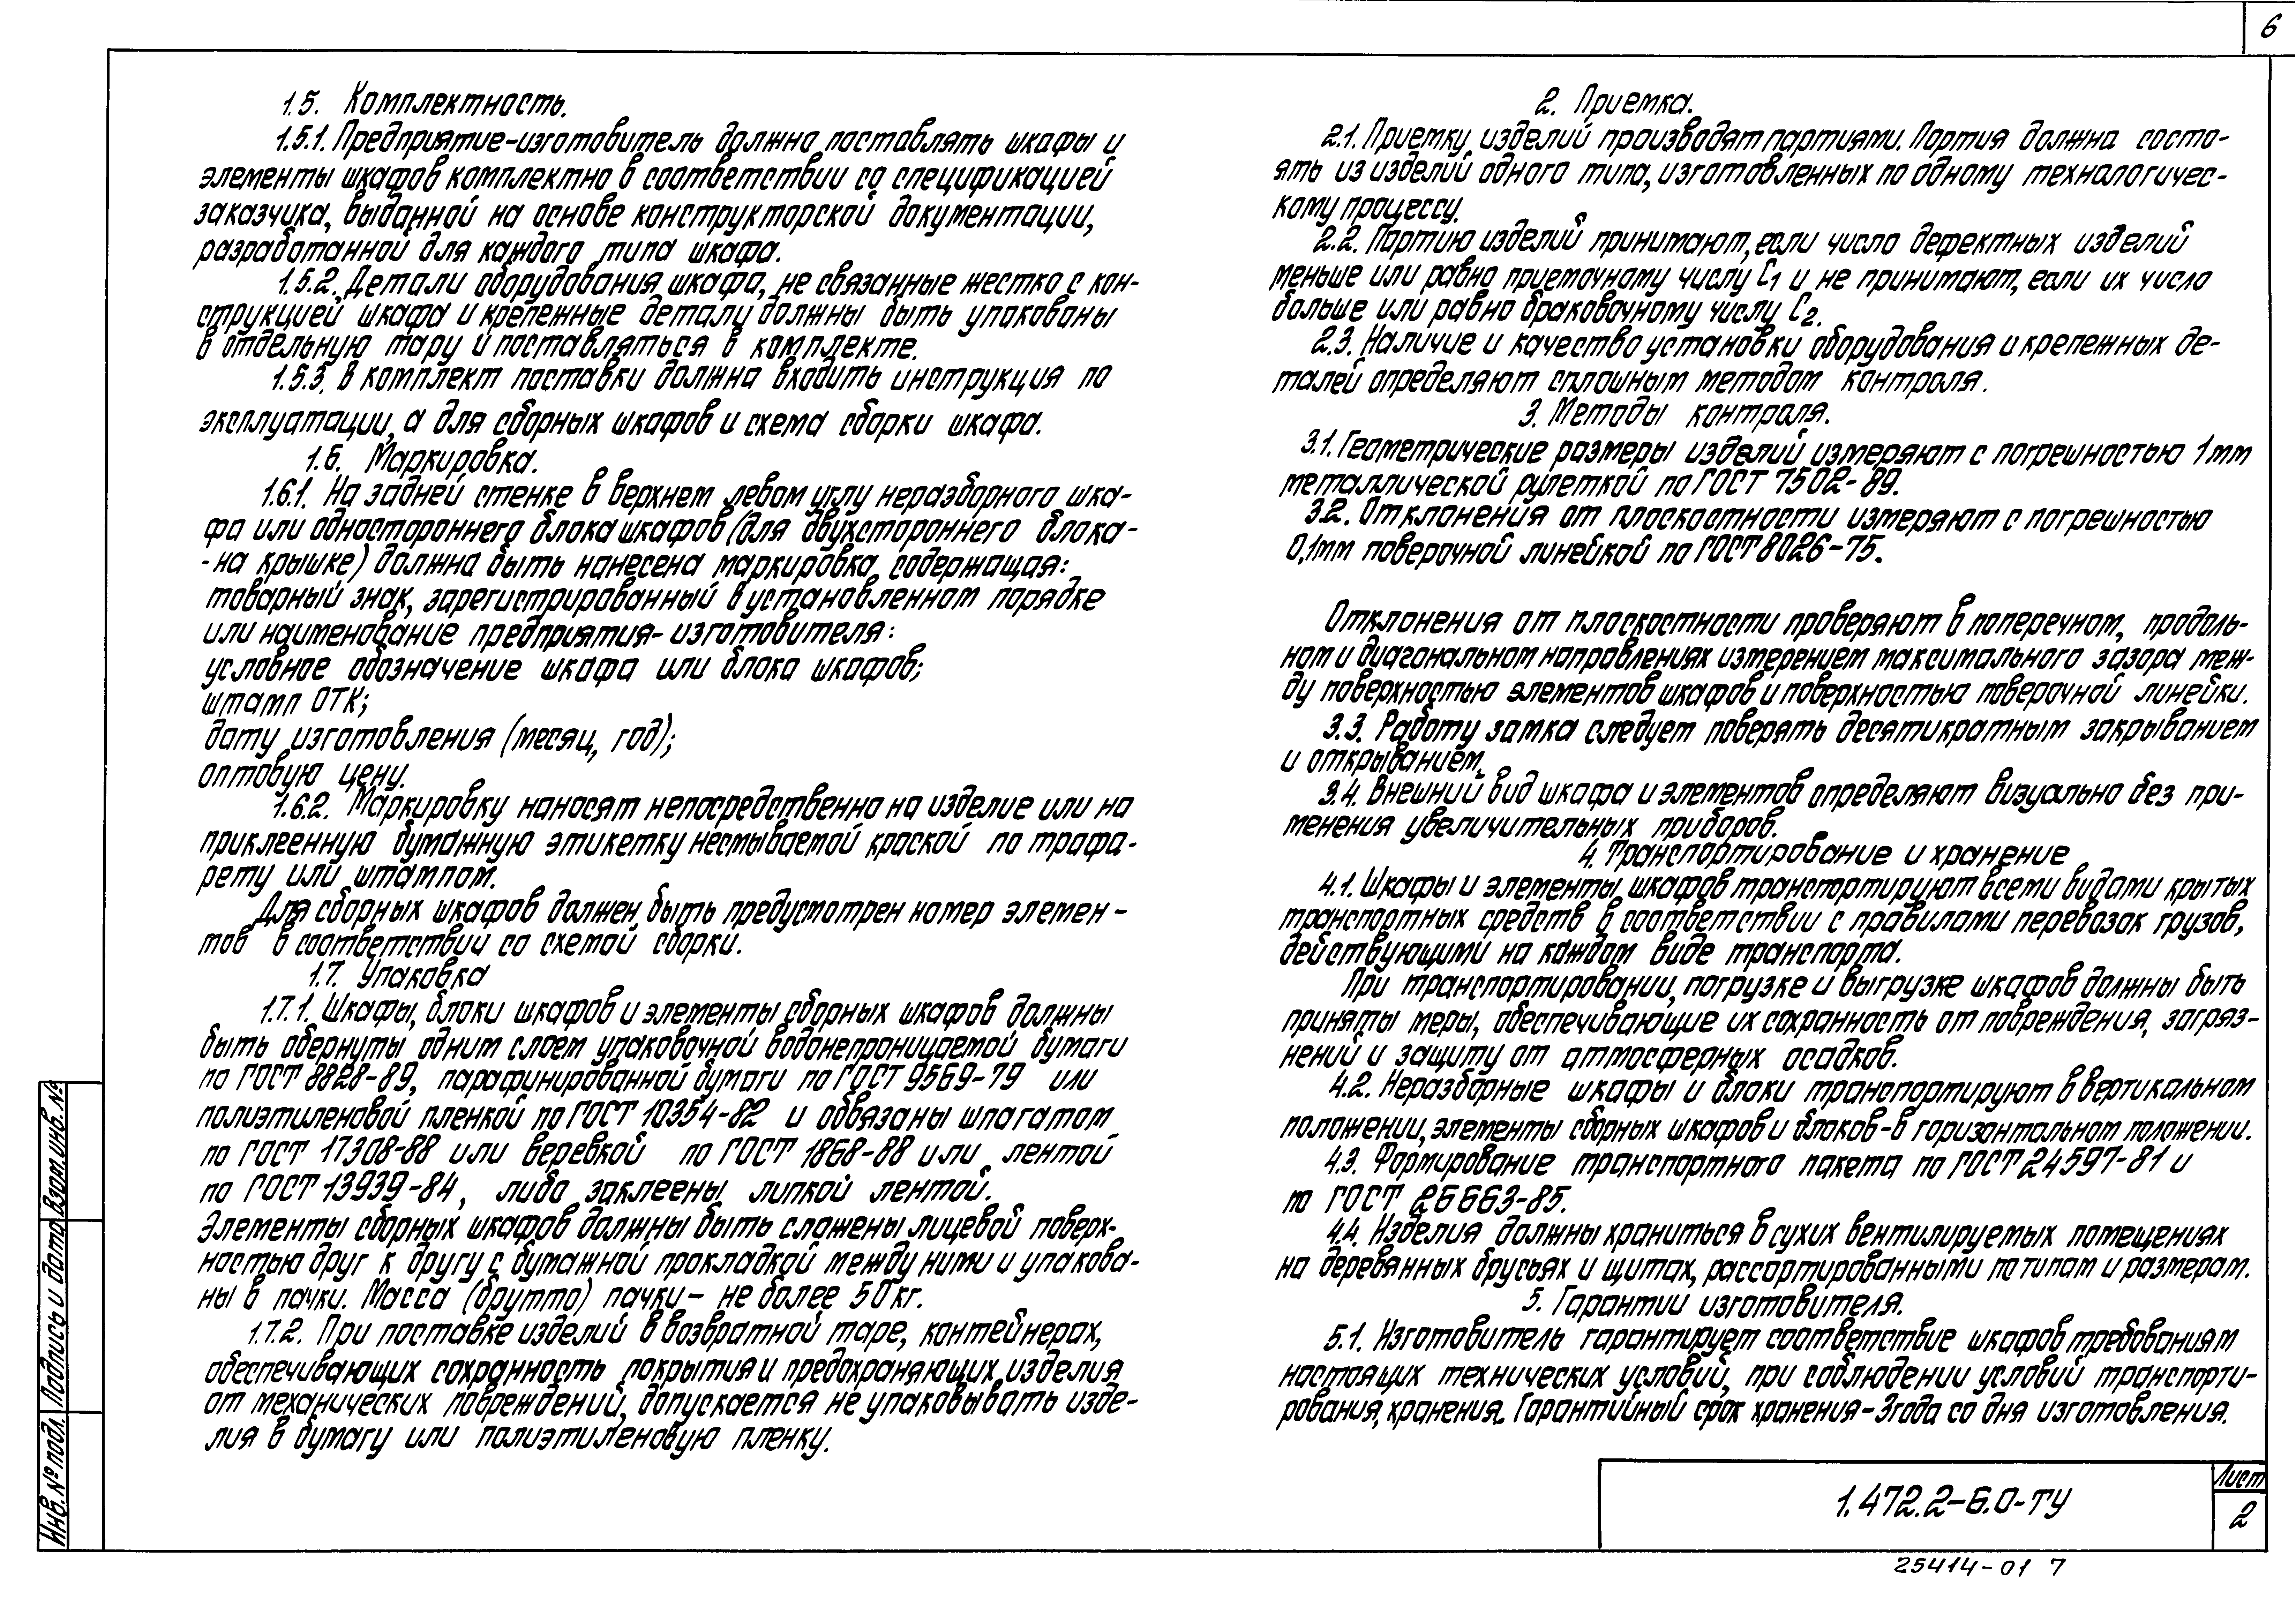 6
1.5. Комплектность.
1.5.1. Предприятие-изготовитель должно поставлять шкафы и
элементы шкафов комплектно в соответствии со спецификацией
заказчика, выданной на основе конструкторской документации,
разработанной для каждого типа шкафа.
1.5.2. Детали оборудования шкафа, не связанные жестко с кон-
струкцией шкафа и крепежные детали должны быть упакованы
в отдельную тару и поставляться в комплекте.
1.5.3. В комплект поставки должна входить инструкция по
эксплуатации, а для сборных шкафов и схема сборки шкафа.
1.6. Маркировка.
1.6.1. На задней стенке в верхнем левом углу неразборного шка-
фа или одностороннего блока шкафов (для двухстороннего блока-
-на крышке) должна быть нанесена маркировка, содержащая:
товарный знак, зарегистрированный в установленном порядке
или наименование предприятия-изготовителя:
условное обозначение шкафа или блока шкафов;
штамп ОТК;
дату изготовления (месяц, год);
оптовую цену.
1.6.2. Маркировку наносят непосредственно на изделие или на
приклеенную бумажную этикетку несмываемой краской по трафа-
рету или штампом.
Для сборных шкафов должен быть предусмотрен номер элемен-
тов в соответствии со схемой сборки.
1.7. Упаковка
1.7.1. Шкафы, блоки шкафов и элементы сборных шкафов должны
быть обернуты одним слоем упаковочной водонепроницаемой бумаги
по ГОСТ 8828-89, парафинированной бумаги по ГОСТ 9569-79 или
полиэтиленовой пленкой по ГОСТ 10354-82 и обвязаны шпагатом
по ГОСТ 17308-88 или веревкой по ГОСТ 1868-88 или лентой
по ГОСТ 13939-84, либо заклеены липкой лентой.
Элементы сборных шкафов должны быть сложены лицевой поверх-
ностью друг к другу с бумажной прокладкой между ними и упакова-
ны в пачки. Масса (брутто) пачки - не более 50кг.
1.7.2. При поставке изделий в возвратной таре, контейнерах,
обеспечивающих сохранность покрытия и предохраняющих изделия
от механических повреждений, допускается не упаковывать изде-
лия в бумагу или полиэтиленовую пленку.
2. Приемка.
2.1. Приемку изделий производят партиями. Партия должна состо-
ять из изделий одного типа, изготовленных по одному технологичес-
кому процессу.
2.2. Партию изделий принимают, если число дефектных изделий
меньше или равно приемочному числу С1 и не принимают, если их число
больше или равно браковочному числу С2.
2.3. Наличие и качество установки оборудования и крепежных де-
талей определяют сплошным методом контроля.
3. Методы контроля.
3.1. Геометрические размеры изделий измеряют с погрешностью 1мм
металлической рулеткой по ГОСТ 7502-89.
3.2. Отклонения от плоскостности измеряют с погрешностью
0,1мм поверочной линейкой по ГОСТ 8026-75.
Отклонения от плоскостности проверяют в поперечном, продоль-
ном и диагональном направлениях измерением максимального зазора меж-
ду поверхностью элементов шкафов и поверхностью поверочной линейки.
3.3. Работу замка следует поверять десятикратным закрыванием
и открыванием.
3.4. Внешний вид шкафа и элементов определяют визуально без при-
менения увеличительных приборов.
4. Транспортирование и хранение
4.1. Шкафы и элементы шкафов транспортируют всеми видами крытых
транспортных средств в соответствии с правилами перевозок грузов,
действующими на каждом виде транспорта.
При транспортировании, погрузке и выгрузке шкафов должны быть
приняты меры, обеспечивающие их сохранность от повреждения, загряз-
нений и защиту от атмосферных осадков.
4.2. Неразборные шкафы и блоки транспортируют в вертикальном
положении, элементы сборных шкафов и блоков-в горизонтальном положении.
4.3. Формирование транспортного пакета по ГОСТ 24597-81 и
по ГОСТ 26663-85.
4.4. Изделия должны храниться в сухих вентилируемых помещениях
на деревянных брусьях и щитах, рассортированными по типам и размерам.
5. Гарантии изготовителя.
5.1. Изготовитель гарантирует соответствие шкафов требованиям
настоящих технических условий, при соблюдении условий транспорти-
рования, хранения. Гарантийный срок хранения-3года со дня изготовления.
Инв. № подл. Подпись и дата Взам.инв.№
1.472.2-6.0-ТУ
Лист
2
25414-01 7